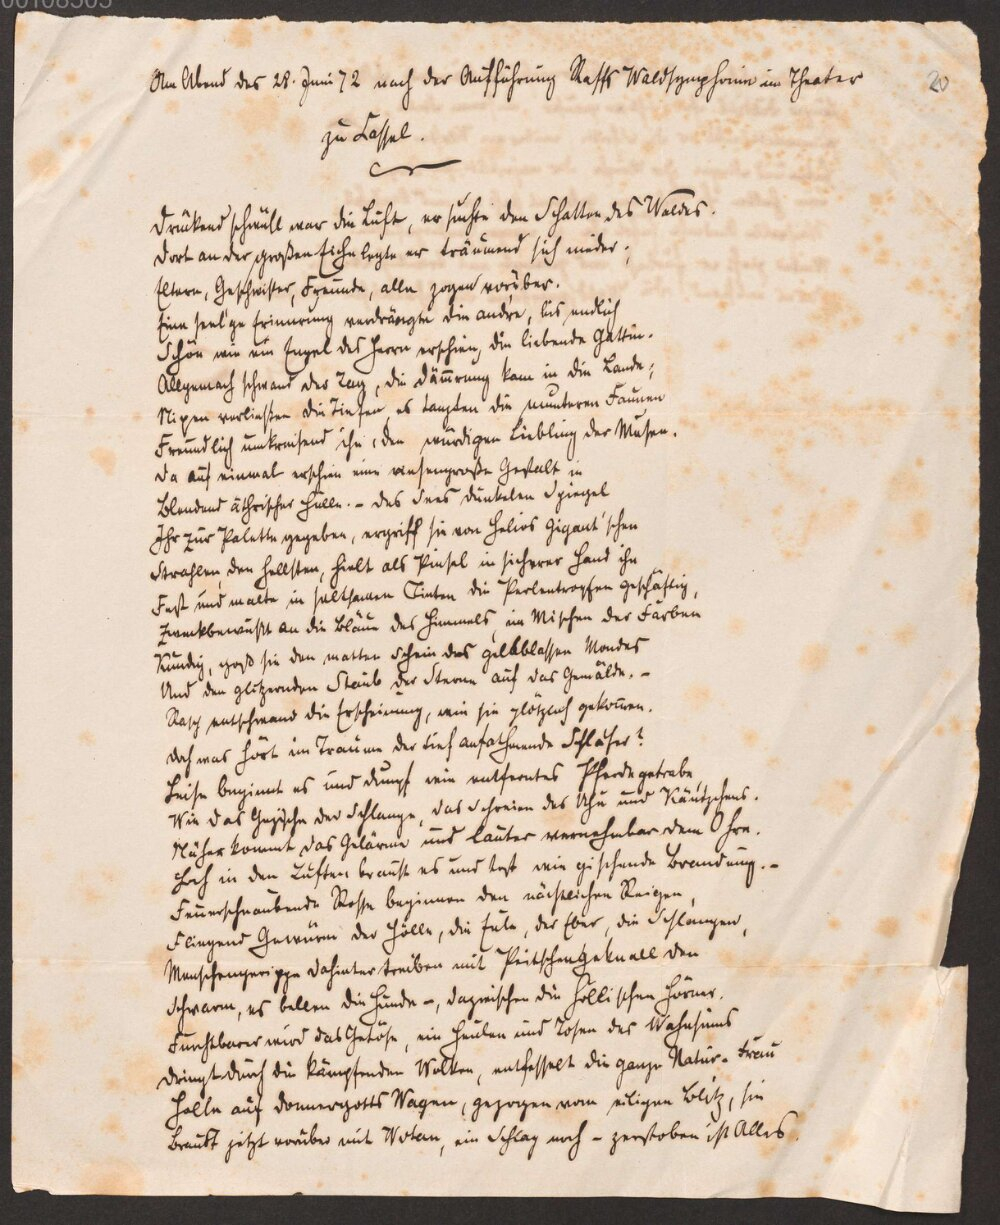 00108505
20
Am Abend des 28. Juni 72 nach der Aufführung Raffs Waldsymphonie im Theater
zu Cassel.
Drückend schwühl war die Luft, er suchte den Schatten des Waldes.
Dort an der großen Eiche legte er träumend sich nieder;
Eltern, Geschwister, Freunde, alle zogen vorüber.
Eine seel'ge Erinnrung verdrängte die andre, bis endlich
Schön wie ein Engel des Herrn erschien, die liebende Gattin.
Allgemach schwand der Tag, die Dämrung kam in die Lande;
Nixen verließen die Tiefen, es tanzten die munteren Faunen
Freundlich umkreisend ihn, den würdigen Liebling der Musen.
Da auf einmal erschien eine riesengroße Gestalt in
Blendend äthrischer Hülle. – Des Sees dunkelen Spiegel
Ihr zur Palette gegeben, ergriff sie von Helios gigant'schen
Strahlen, den hellsten, hielt als Pinsel in sicherer Hand ihn
Fest und malte in seltsamen Tinten die Perlentropfen geschäftig,
Zweckbewußt an die Bläue des Himmels, im Mischen der Farben
Kundig, goß sie den matten Schein des gelbblassen Mondes
Und den glitzernden Staub der Sterne auf das Gemälde. –
Rasch entschwand die Erscheinung, wie sie plötzlich gekommen.
Doch was hört im Traume der tief aufathmende Schläfer?
Leise beginnt es und dumpf wie entferntes Pferdegetrabe,
Wie das Gezische der Schlange, das Schreien des Uhu und Käutzchens.
Näher kommt das Gelärme und lauter vernehmbar dem Ohre.
Hoch in den Lüften braust es und tost wie zischende Brandung. –
Feuerschnaubende Rosse beginnen den nächtlichen Reigen,
Fliegend Gewürm der Hölle, die Eule, der Eber, die Schlangen,
Menschengerippe dahinter treiben mit Peitschengeknall den
Schwarm, es bellen die Hunde –, dazwischen die höllischen Hörner.
Furchtbarer wird das Getöse, ein Heulen und Tosen des Wahnsinns
Dringt durch die kämpfenden Wolken, entfesselt die ganze Natur. Frau
Holle auf Donnergotts Wagen, gezogen vom eiligen Blitz, sie
Braust jetzt vorüber mit Wotan, ein Schlag noch – zerstoben ist Alles.